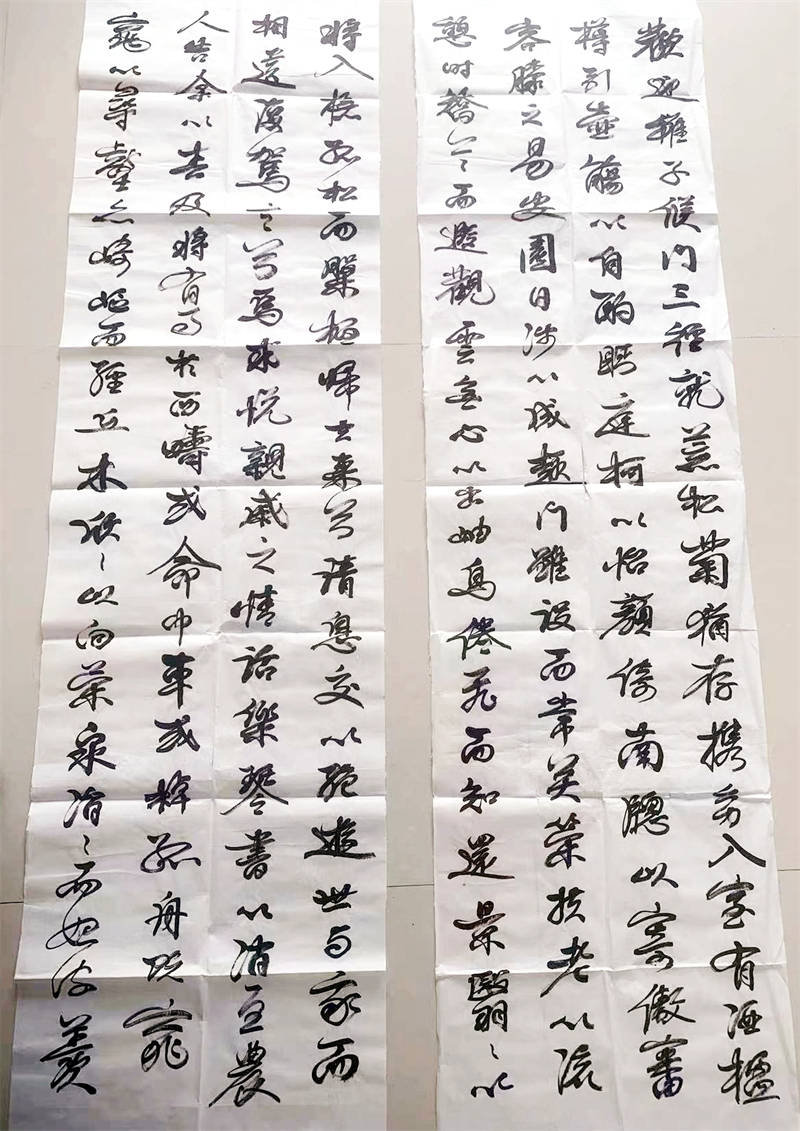 歡迎稚子候門三徑就荒松菊猶存携幼入室有酒楹
樽引壺觴以自酌眄庭柯以怡顏倚南牕以寄傲審
容膝之易安園日涉以成趣門雖設而常关策扶老以流
憩时矯首而遐觀雲無心以出岫鳥倦飛而知還景翳々以
將入撫孤松而盤桓歸去来兮請息交以絕遊世与我而
相遺復駕言兮焉求悦親戚之情話樂琴書以消憂農
人告余以春及將有事於西疇或命巾車或棹孤舟既窈
窕以尋壑亦崎嶇而經丘木欣々以向榮泉涓々而始流羨